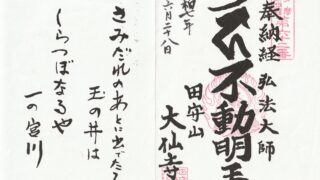 奉納経 弘法大師
不動明王
田守山
大仙寺
六月二十八日
さみだれのあとに出でたる
玉の井は
しらつぼなるや
一の宮川